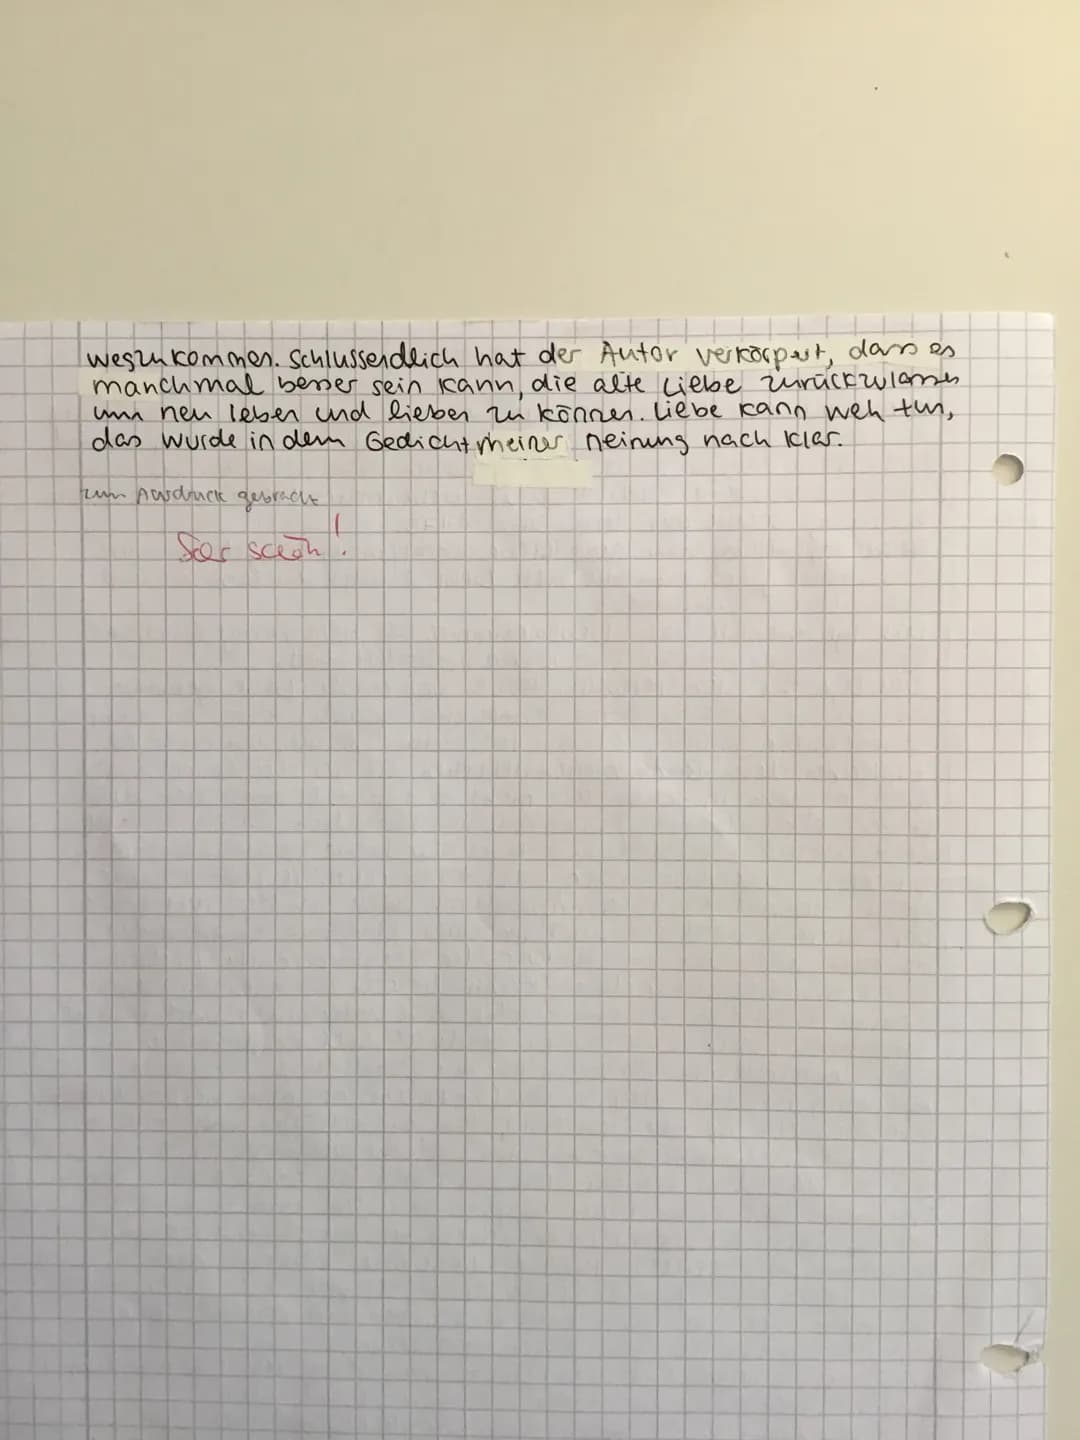 wegzukommen. Schlussendlich hat der Autor verkörpert, dass es
manchmal besser sein kann, die alte Liebe zurückzulassen
um neu leben und lieben zu können. Liebe kann weh tun,
das wurde in dem Gedicht meiner Meinung nach klar.
zum Ausdruck gebracht
Sehr schön!